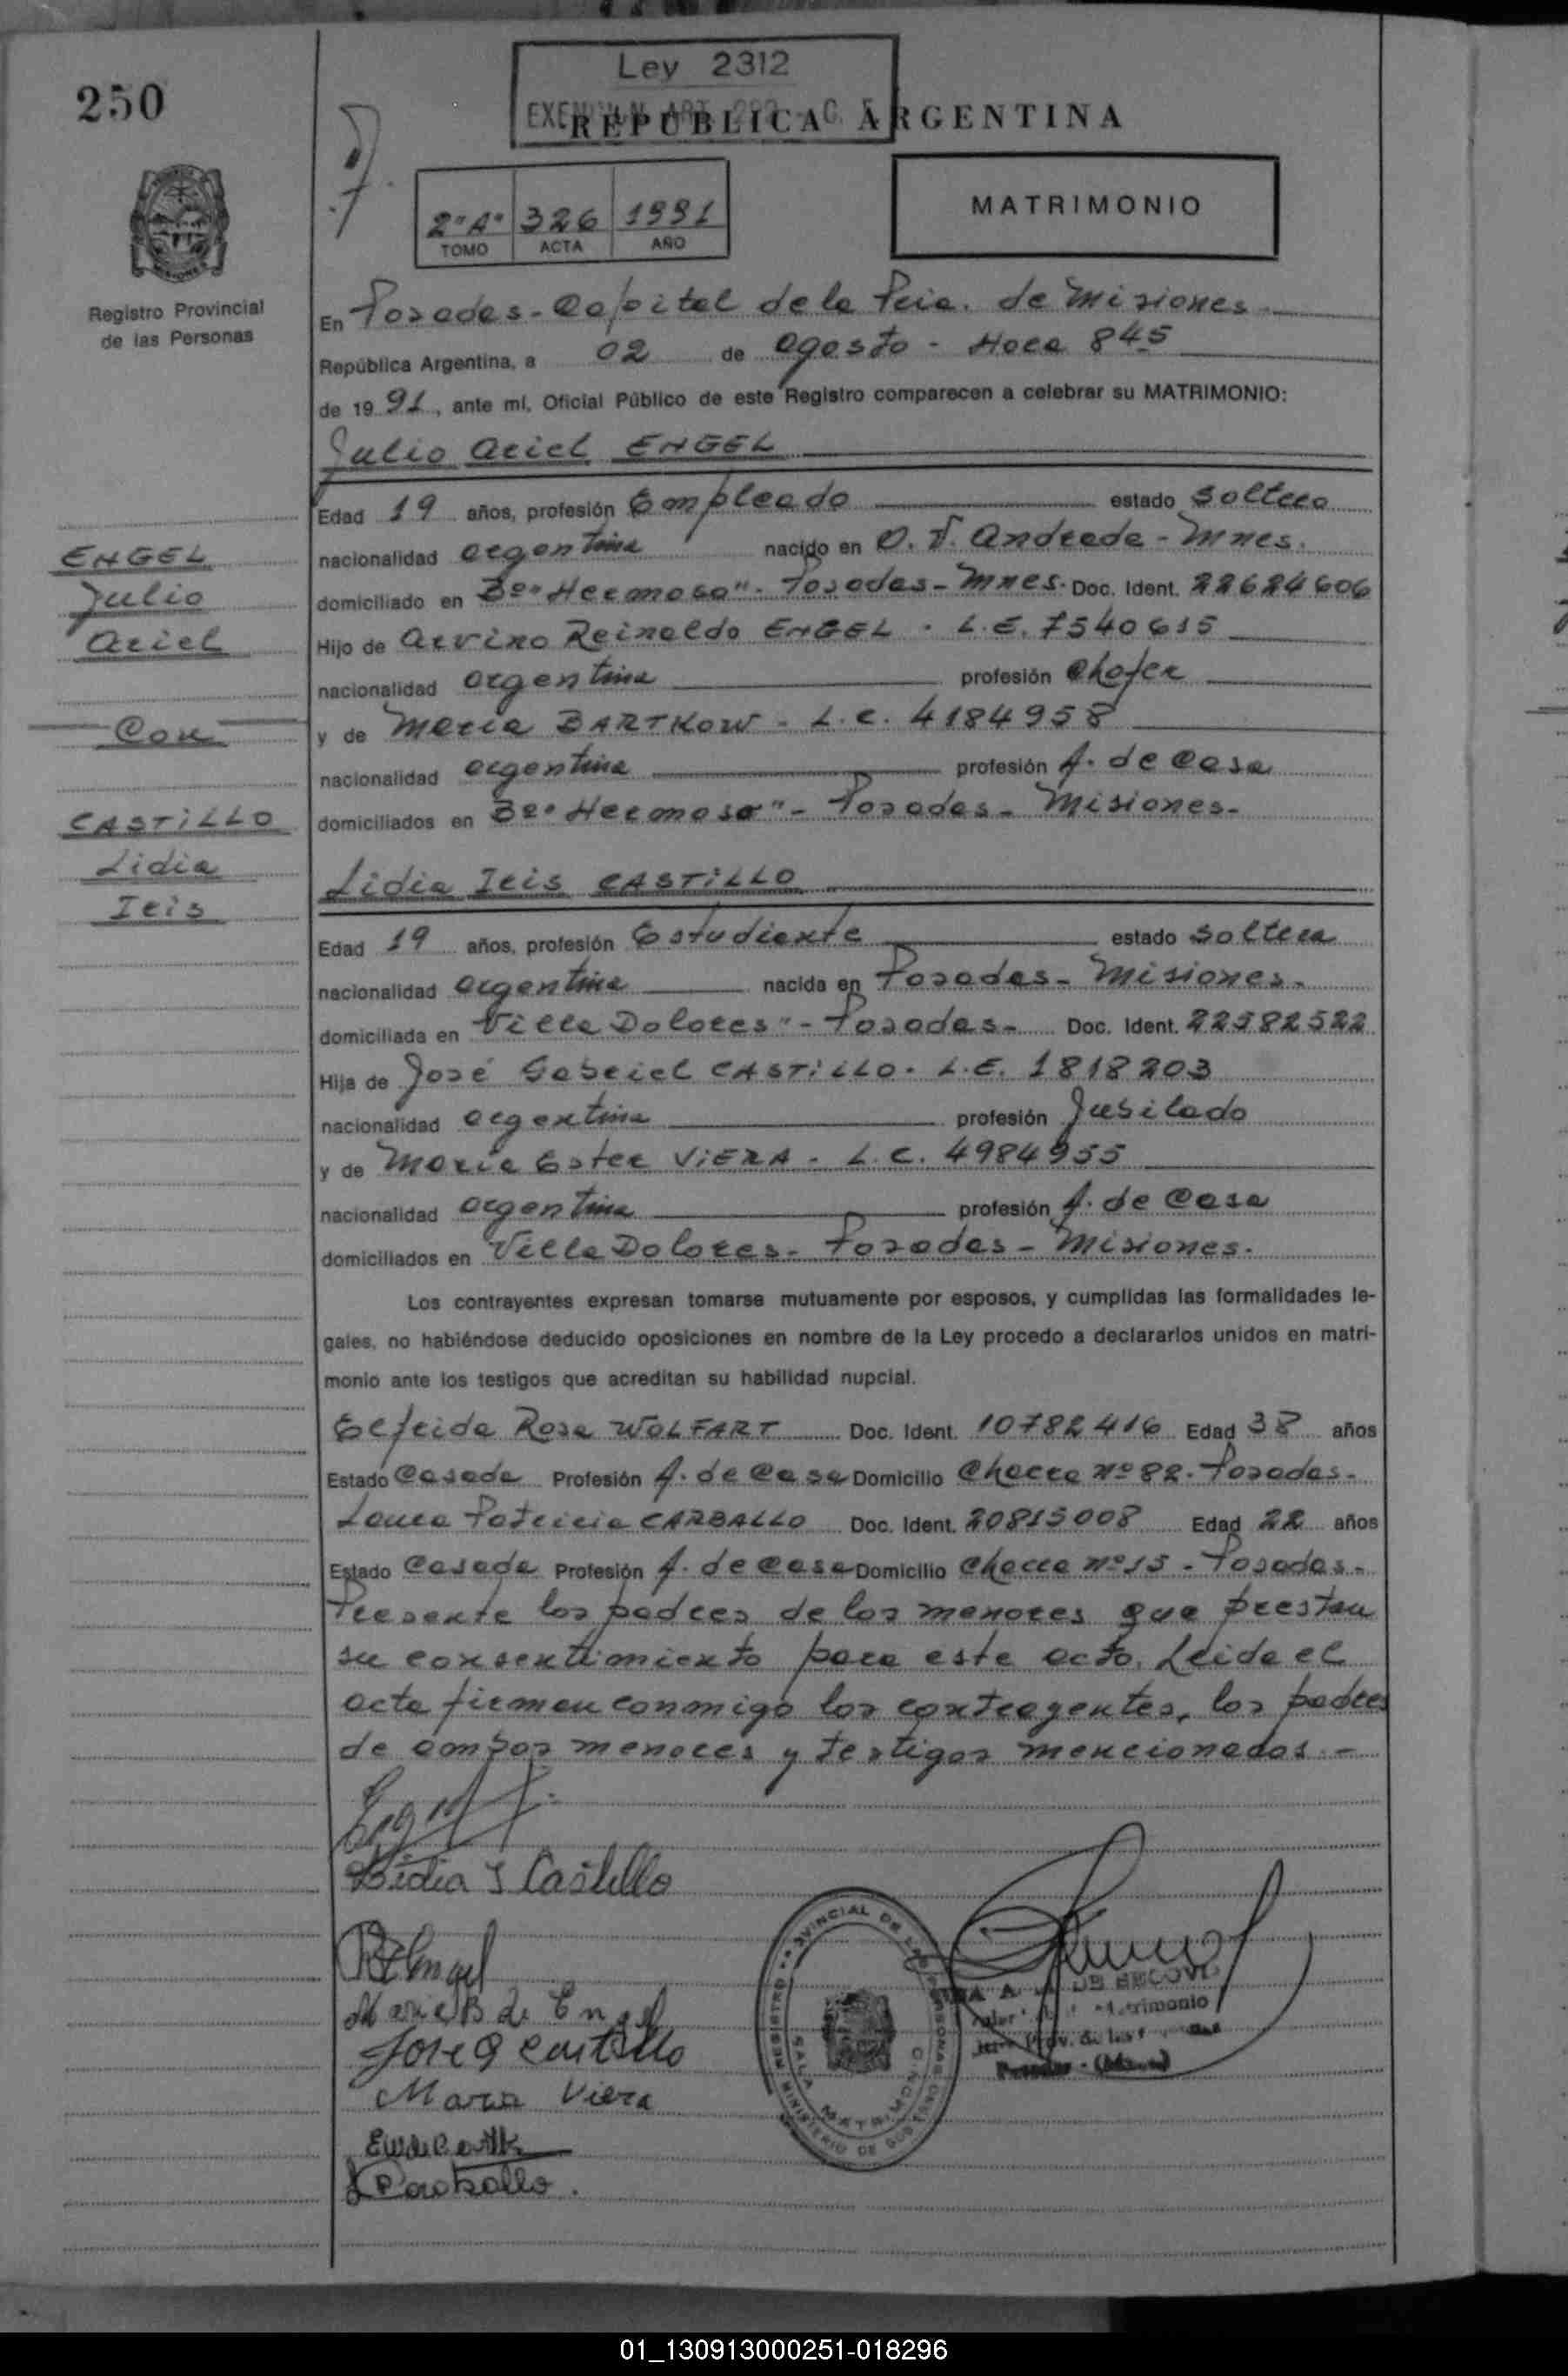 250
Ley 2312
EXENCION ART. 292 - C.
REPUBLICA ARGENTINA
2º"A" 326 1991
TOMO ACTA AÑO
MATRIMONIO
Registro Provincial
de las Personas
En Posadas - Capital de la Pcia. de Misiones
República Argentina, a 02 de agosto - Hora 8 45
de 19 91, ante mí, Oficial Público de este Registro comparecen a celebrar su MATRIMONIO:
Julio Ariel ENGEL
Edad 19 años, profesión Empleado estado soltero
nacionalidad argentina nacido en O. V. Andrade - Mnes.
domiciliado en Bº "Hermoso" - Posadas - Mnes. Doc. Ident. 22624606
Hijo de Arvino Reinaldo ENGEL - L.E. 7540615
nacionalidad argentina profesión Chofer
y de María BARTKOW - L.C. 4184958
nacionalidad argentina profesión A. de Casa
domiciliados en Bº "Hermoso" - Posadas - Misiones -
Lidia Iris CASTILLO
Edad 19 años, profesión Estudiante estado soltera
nacionalidad argentina nacida en Posadas - Misiones -
domiciliada en Villa Dolores" - Posadas - Doc. Ident. 22582522
Hija de José Gabriel CASTILLO - L.E. 1818203
nacionalidad argentina profesión Jubilado
y de María Ester VIERA - L.C. 4984955
nacionalidad argentina profesión A. de Casa
domiciliados en Villa Dolores - Posadas - Misiones.
Los contrayentes expresan tomarse mutuamente por esposos, y cumplidas las formalidades le-
gales, no habiéndose deducido oposiciones en nombre de la Ley procedo a declararlos unidos en matri-
monio ante los testigos que acreditan su habilidad nupcial.
Elfrida Rosa WOLFART Doc. Ident. 10782416 Edad 38 años
Estado Casada Profesión A. de Casa Domicilio Chacra nº 82 - Posadas -
Laura Patricia CARBALLO Doc. Ident. 20815008 Edad 22 años
Estado Casada Profesión A. de Casa Domicilio Chacra nº 15 - Posadas -
Presente los padres de los menores que prestan
su consentimiento para este acto. Leida el
acta firman conmigo los contrayentes, los padres
de ambos menores y testigos mencionados. -
ENGEL
Julio
Ariel
Con
CASTILLO
Lidia
Iris
Lidia I Castillo
R Engel
Maria B de Engel
Jose G Castillo
Maria Viera
L P Carballo.
DE SEGOVIA
Matrimonio
Posadas - (Mnes)
REGISTRO PROVINCIAL DE LAS PERSONAS
MINISTERIO DE GOBIERNO
SALA MATRIMONIO
01_130913000251-018296